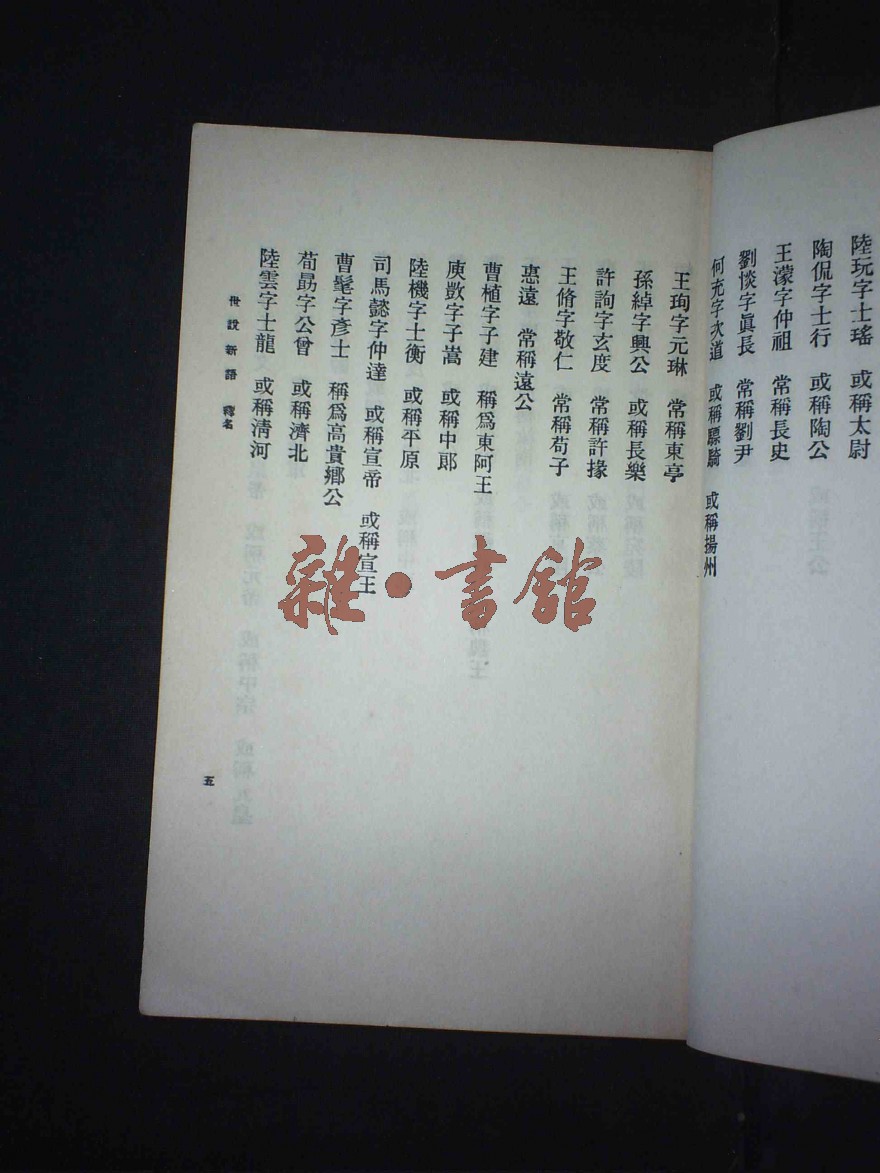 陸玩字士瑤　或稱太尉
陶侃字士行　或稱陶公
王濛字仲祖　常稱長史
劉惔字眞長　常稱劉尹
何充字次道　或稱驃騎　或稱揚州
王珣字元琳　常稱東亭
孫綽字興公　或稱長樂
許詢字玄度　常稱許掾
王脩字敬仁　常稱苟子
惠遠　常稱遠公
曹植字子建　稱爲東阿王
庾敳字子嵩　或稱中郞
陸機字士衡　或稱平原
司馬懿字仲達　或稱宣帝　或稱宣王
曹髦字彥士　稱爲高貴鄉公
荀勗字公曾　或稱濟北
陸雲字士龍　或稱清河
世說新語　釋名
五
雜·書館